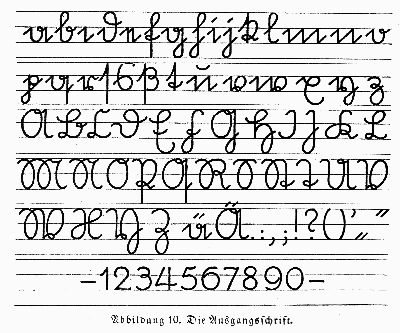 a b c d e f g h i j k l m n o
p q r ſ s ß t ŭ v w x y z
A B C D E F G H I J K L
M N O P Q R S T U V
W X Y Z ü Ä . : , ; ! ? ( ) ' „ “
–1234567890–
Abbildung 10. Die Ausgangsſchrift.